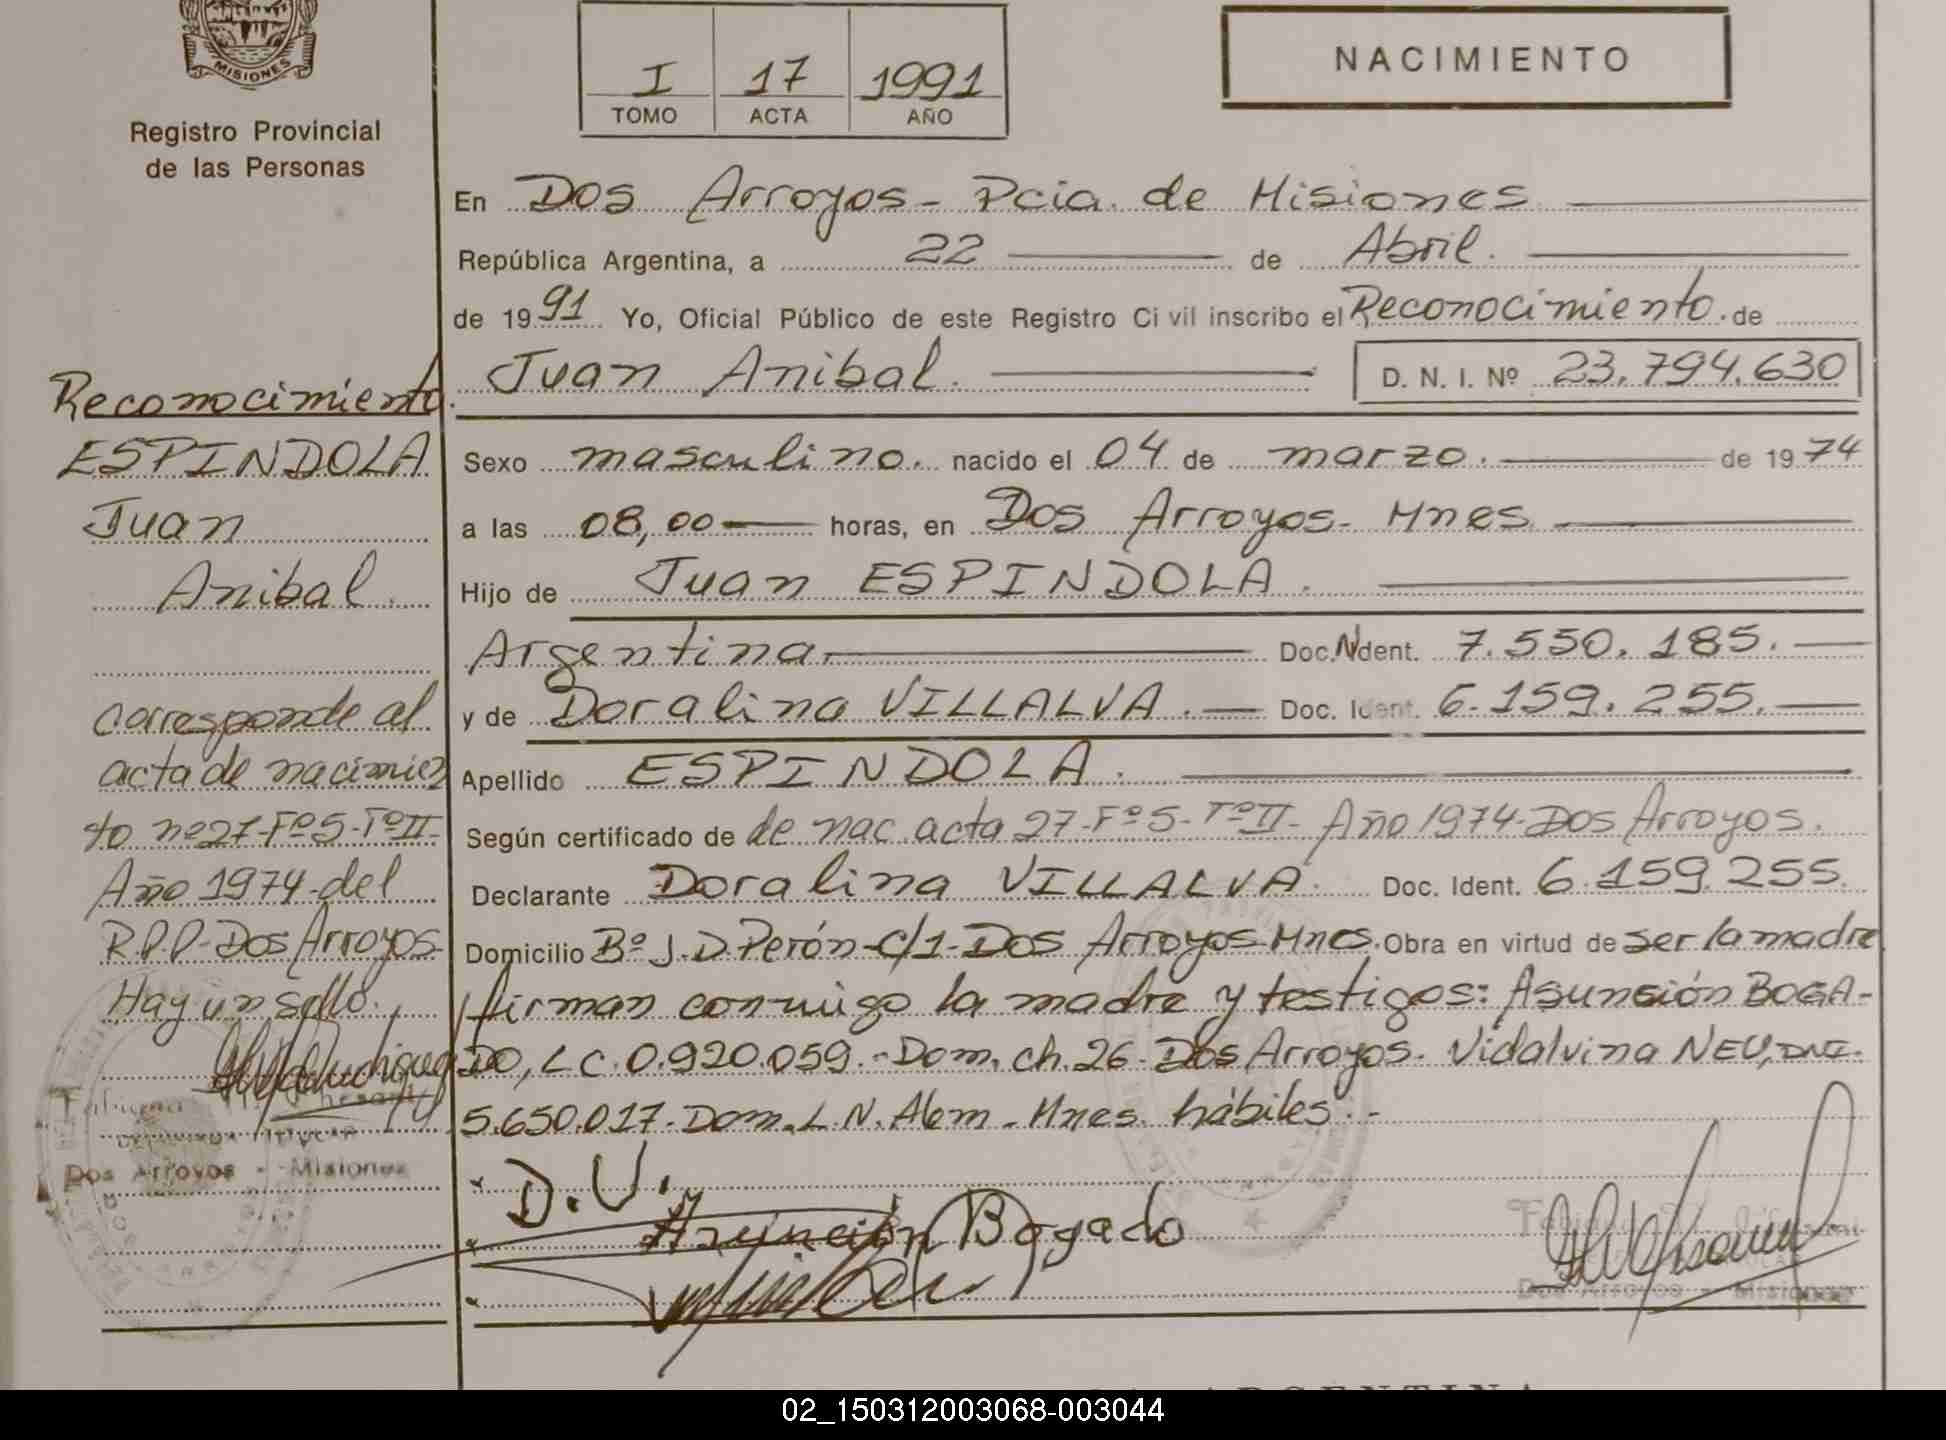 MISIONES
Registro Provincial
de las Personas
I 17 1991
TOMO ACTA AÑO
NACIMIENTO
En Dos Arroyos - Pcia. de Misiones
República Argentina, a 22 de Abril.
de 1991 Yo, Oficial Público de este Registro Civil inscribo el Reconocimiento de
Juan Anibal. D. N. I. Nº 23.794.630
Sexo masculino. nacido el 04 de marzo. de 1974
a las 08,00 horas, en Dos Arroyos - Mnes
Hijo de Juan ESPINDOLA.
Argentina. Doc. Ident. 7.550.185.
y de Doralina VILLALVA. Doc. Ident. 6.159.255.
Apellido ESPINDOLA.
Según certificado de de nac. acta 27-Fº5-TºII- Año 1974-Dos Arroyos.
Declarante Doralina VILLALVA. Doc. Ident. 6.159.255.
Domicilio Bº J.D.Perón-c/1-Dos Arroyos-Mnes. Obra en virtud de ser la madre
firman conmigo la madre y testigos: Asunción BOGA-
DO, L C. 0.920.059.-Dom. ch.26-Dos Arroyos. Vidalvina NEU, DNI.
5.650.017-Dom. L.N. Alem-Mnes. hábiles.-
D.V.
Asunción Bogado
Reconocimiento.
ESPINDOLA
Juan
Anibal.
corresponde al
acta de nacimien
to nº27-Fº5-TºII-
Año 1974-del
R.P.P-Dos Arroyos-
Hay un sello.
TITULAR
Dos Arroyos - Misiones
Dos Arroyos - Misiones
ARGENTINA
02_150312003068-003044